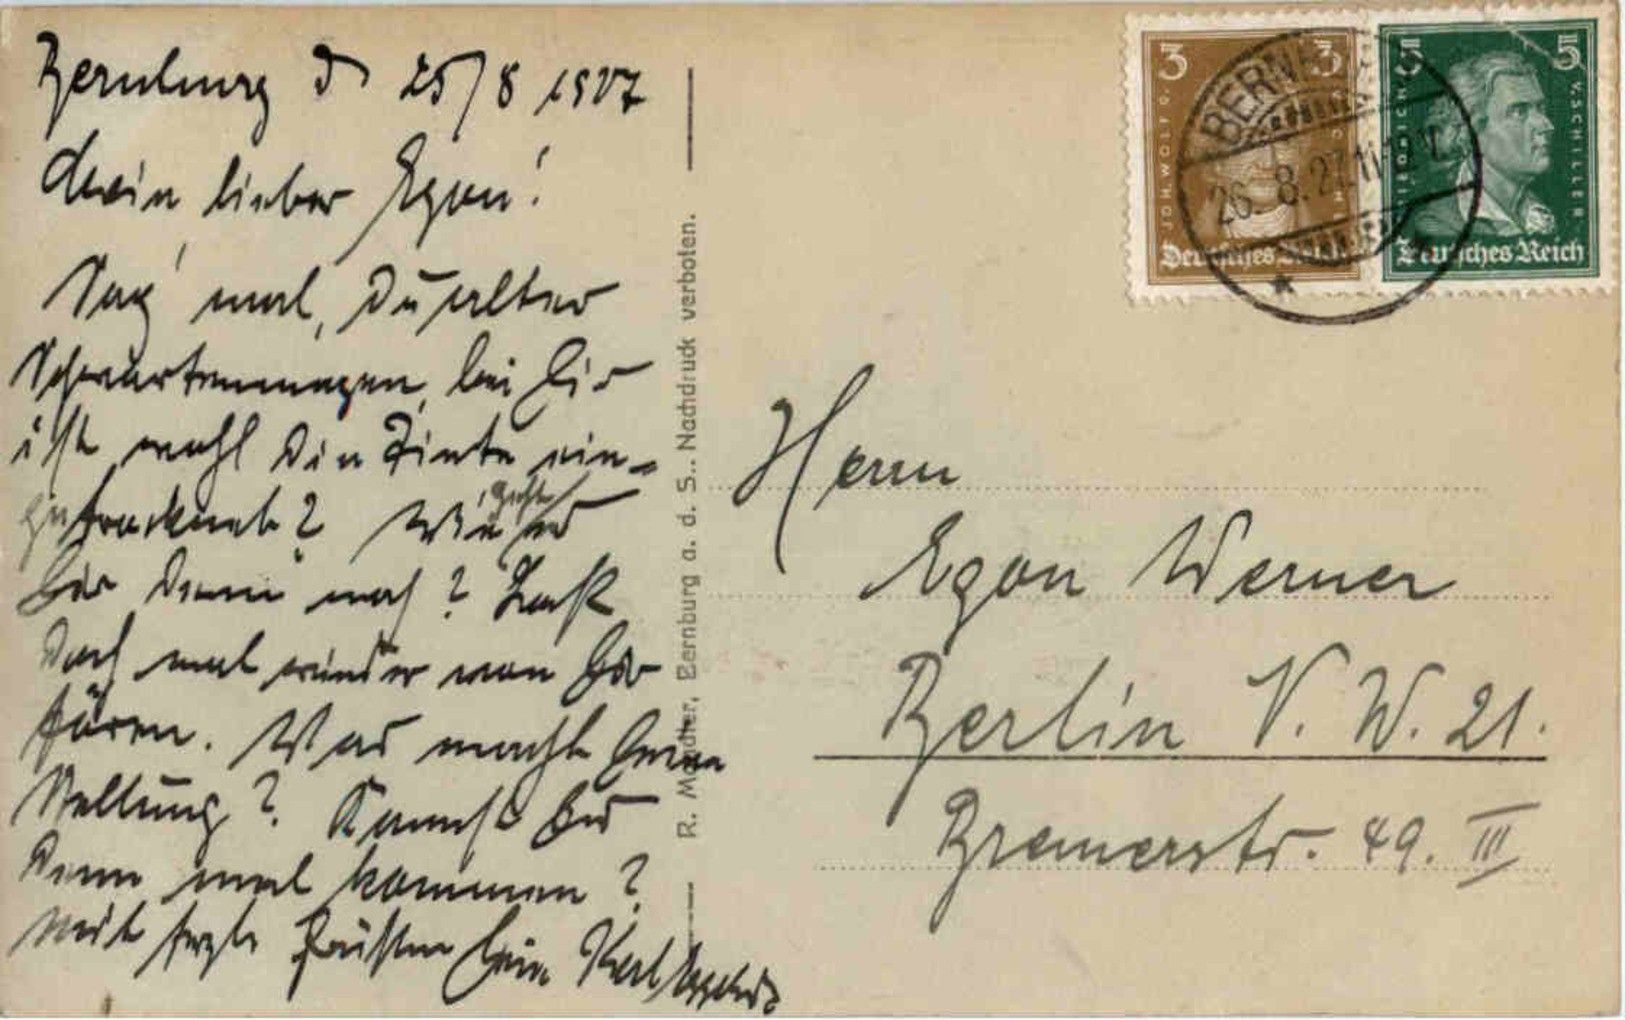 Bernburg d 25/8 1927
Mein lieber Egon!
Sag' mal, Du alter
Schwartenmagen, bei Dir
ist wohl die Tinte ein-
getrocknet? Wie geht es
Dir denn noch? Laß
doch mal wieder von Dir
hören. Was macht Deine
Stellung? Kannst Du
denn mal kommen?
Mit herzl. Grüßen Dein Karl
R. Mandler, Bernburg a. d. S.. Nachdruck verboten.
3 3
JOH. WOLFG.
Deutsches Reich
5 5
FRIEDRICH V. SCHILLER
Deutsches Reich
BERNBURG
26. 8. 27. 11-12 V.
Herrn
Egon Werner
Berlin N. W. 21.
Bremerstr. 49. III